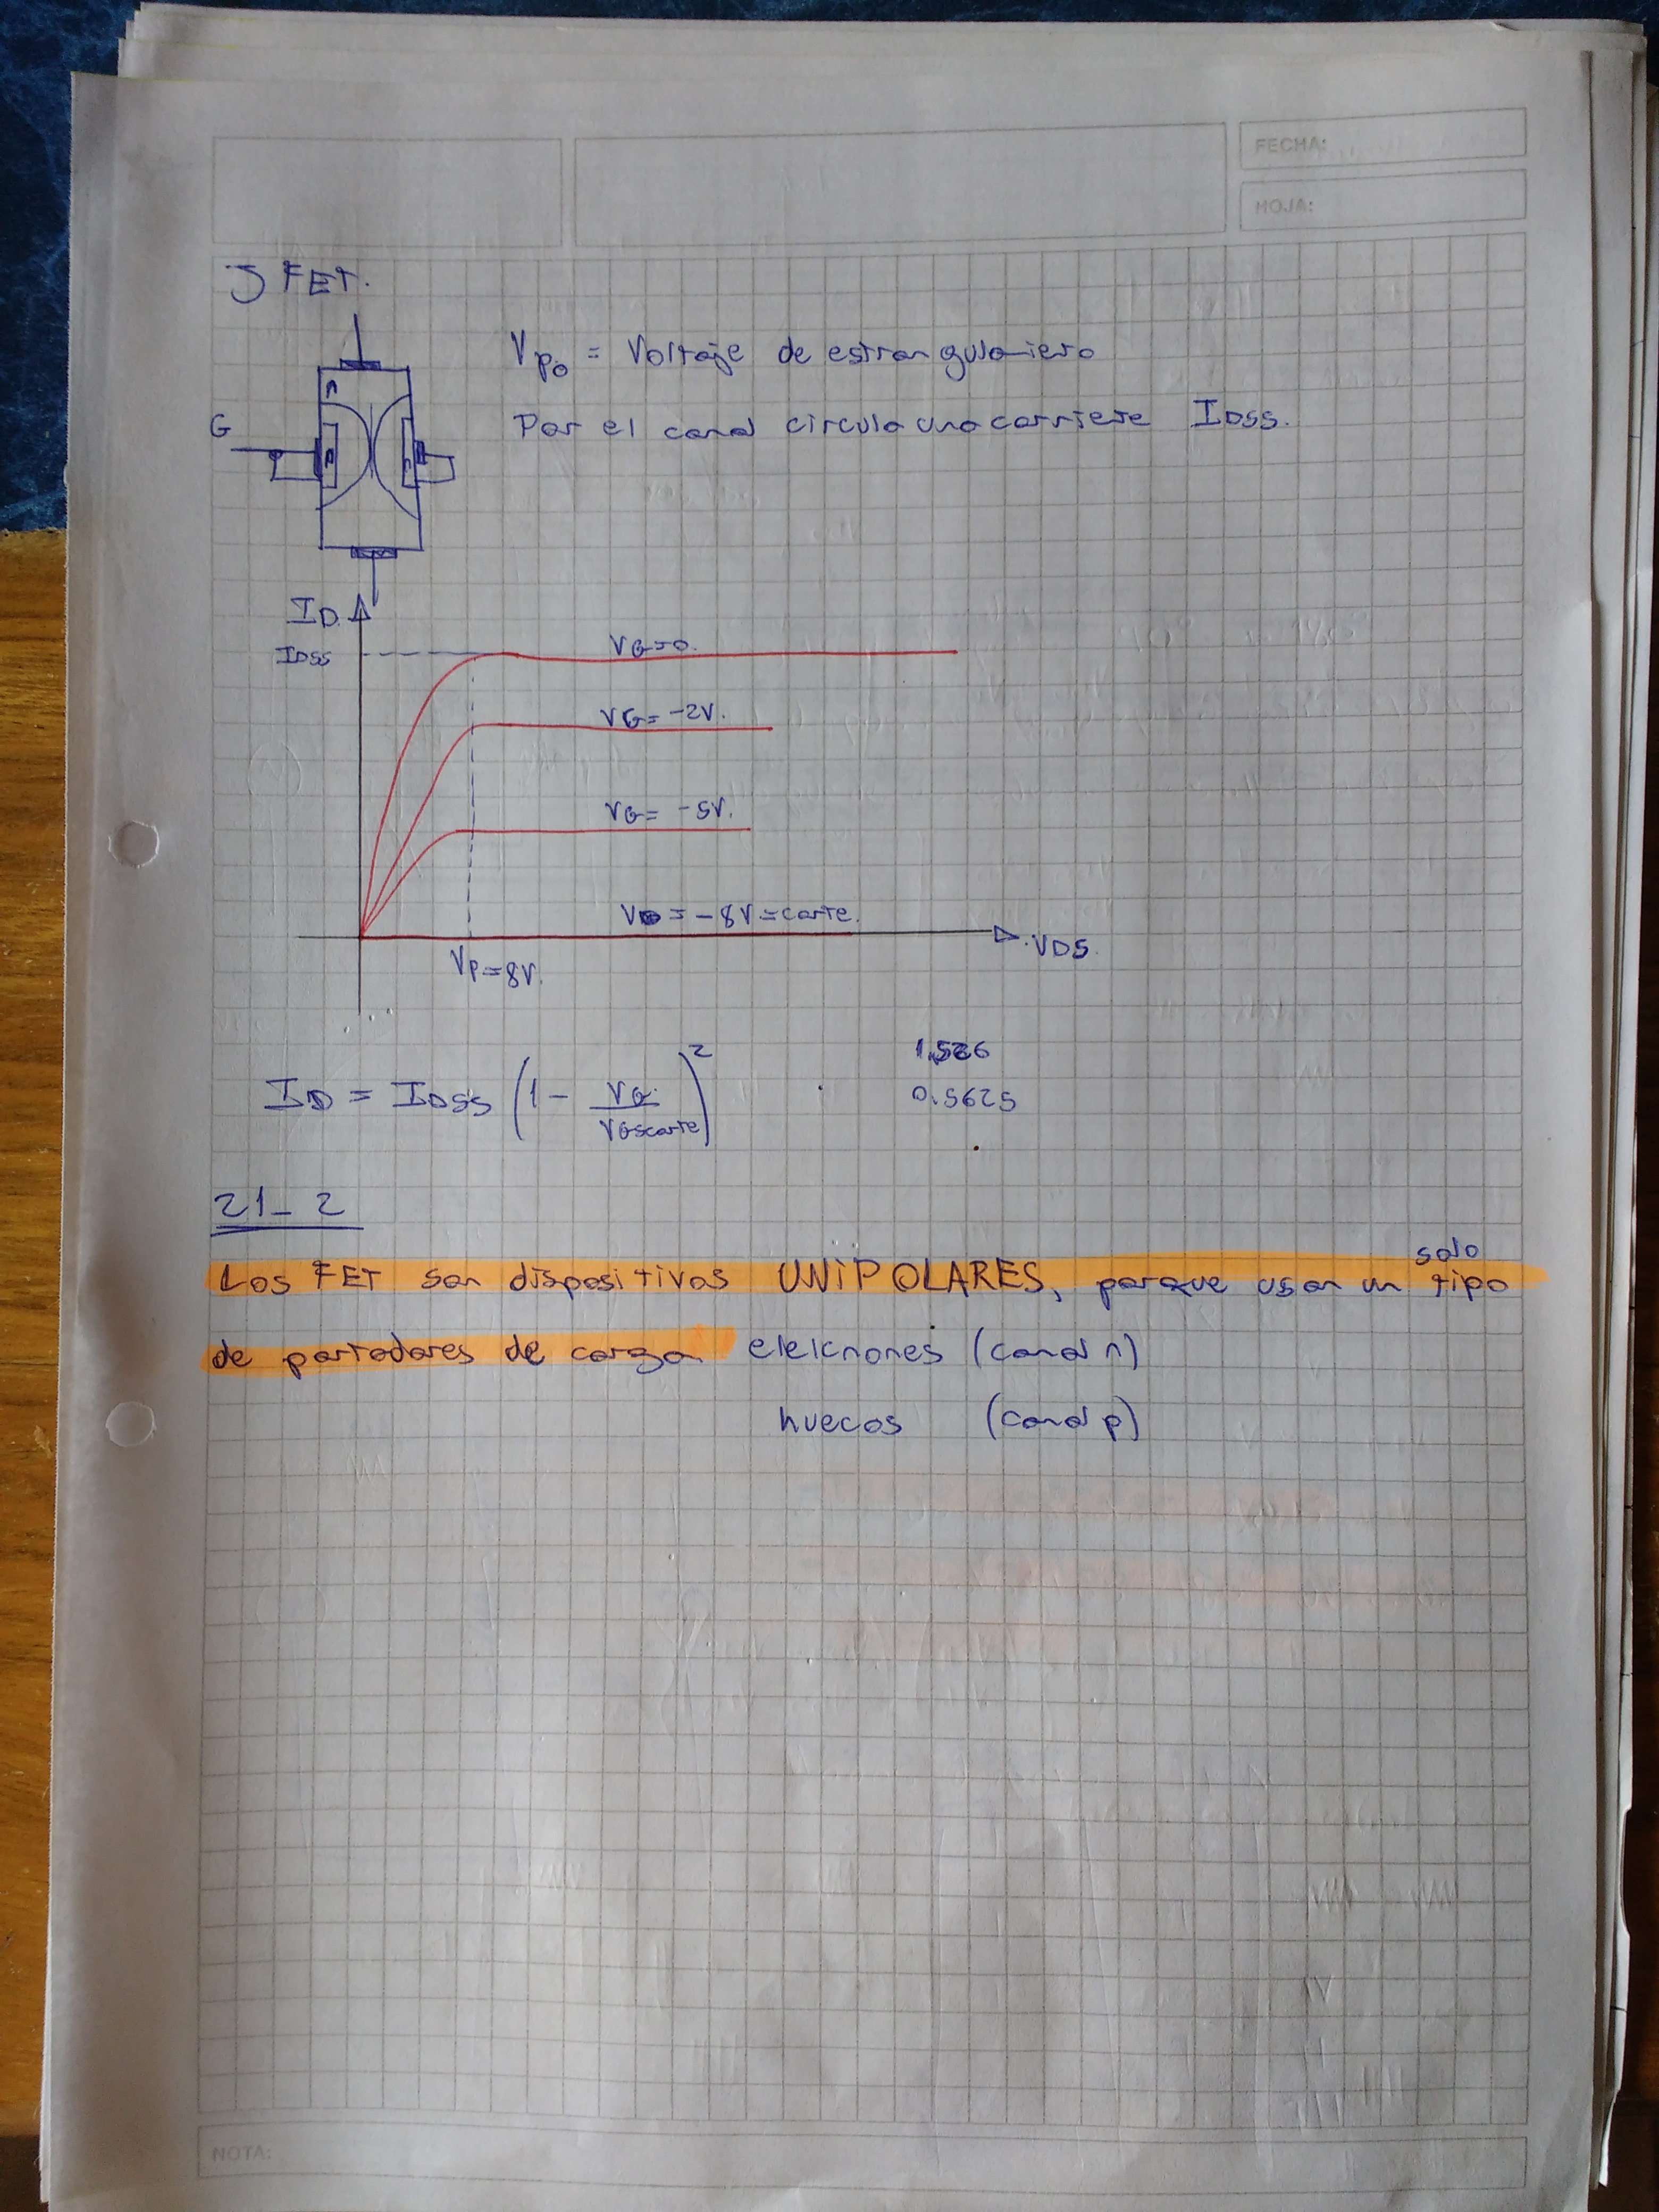 FECHA:
HOJA:
JFET.
Vpo = Voltaje de estrangulamiento
Por el canal circula una corriente IDSS.
G
n
P
P
ID
IDSS
VG=0.
VG= -2V.
VG= -5V.
VG = -8V=corte.
VDS.
Vp=8V.
ID = IDSS (1 - VG/VGScorte)²
0.5625
21_2
Los FET son dispositivos UNIPOLARES, porque usan un solo tipo
de portadores de carga electrones (canal n)
huecos (canal p)
NOTA: